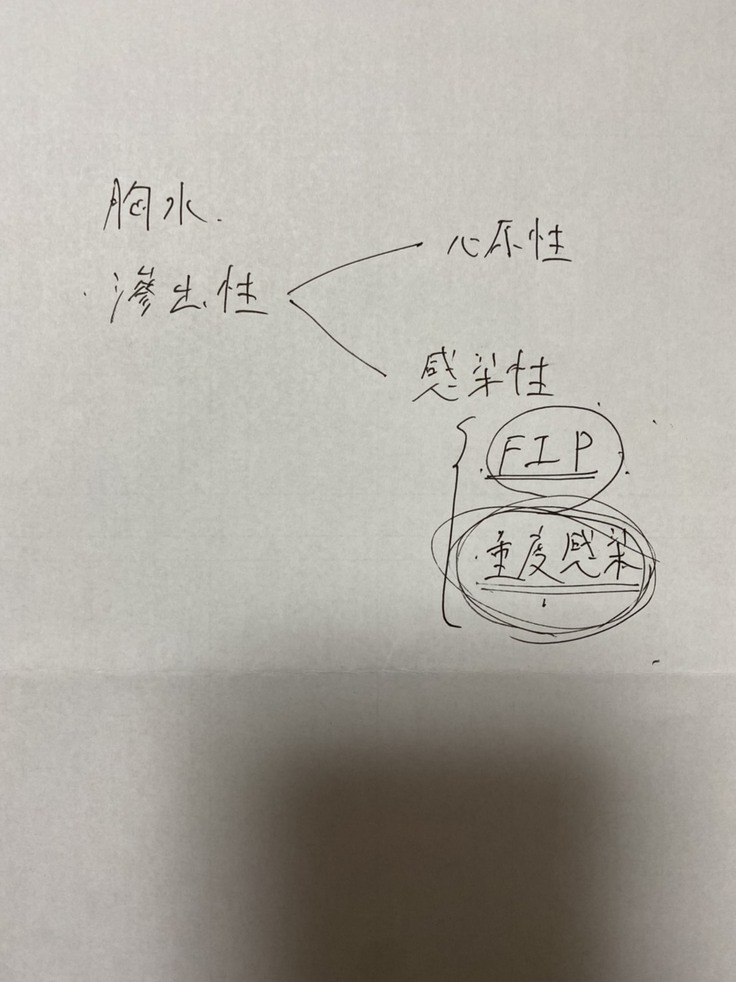 胸水.
滲出性
心原性
感染性
FIP
重度感染